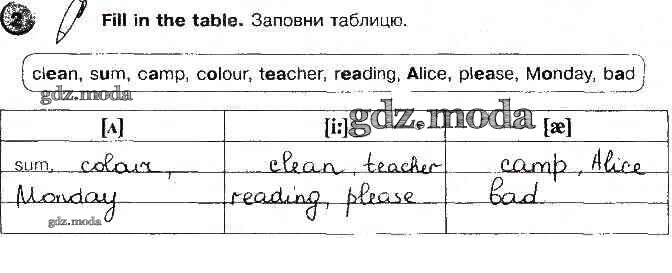 2 Fill in the table. Заповни таблицю.
clean, sum, camp, colour, teacher, reading, Alice, please, Monday, bad
gdz.moda
gdz.moda
[ʌ] [i:] [æ]
sum, colour, clean, teacher camp, Alice
Monday reading, please bad
gdz.moda